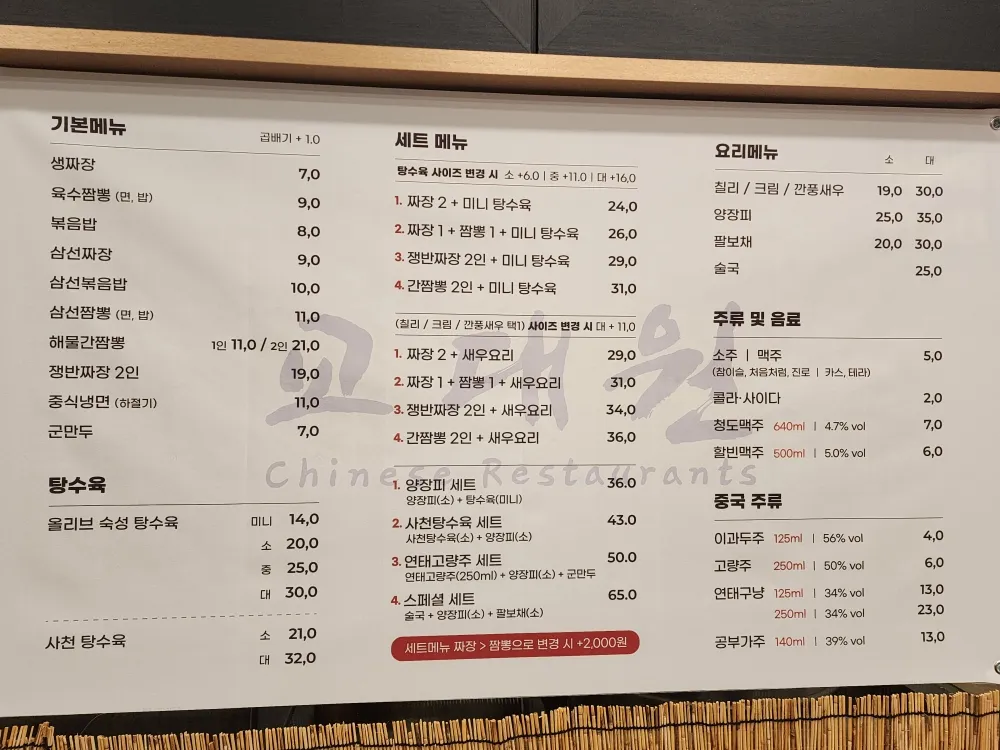 기본메뉴
곱배기 + 1.0
생짜장 7,0
육수짬뽕 (면, 밥) 9,0
볶음밥 8,0
삼선짜장 9,0
삼선볶음밥 10,0
삼선짬뽕 (면, 밥) 11,0
해물간짬뽕 1인 11,0 / 2인 21,0
쟁반짜장 2인 19,0
중식냉면 (하절기) 11,0
군만두 7,0
탕수육
올리브 숙성 탕수육 미니 14,0
소 20,0
중 25,0
대 30,0
사천 탕수육 소 21,0
대 32,0
세트 메뉴
탕수육 사이즈 변경 시 소 +6.0 | 중 +11.0 | 대 +16,0
1. 짜장 2 + 미니 탕수육 24,0
2. 짜장 1 + 짬뽕 1 + 미니 탕수육 26,0
3. 쟁반짜장 2인 + 미니 탕수육 29,0
4. 간짬뽕 2인 + 미니 탕수육 31,0
(칠리 / 크림 / 깐풍새우 택1) 사이즈 변경 시 대 + 11,0
1. 짜장 2 + 새우요리 29,0
2. 짜장 1 + 짬뽕 1 + 새우요리 31,0
3. 쟁반짜장 2인 + 새우요리 34,0
4. 간짬뽕 2인 + 새우요리 36,0
1. 양장피 세트 36.0
양장피(소) + 탕수육(미니)
2. 사천탕수육 세트 43.0
사천탕수육(소) + 양장피(소)
3. 연태고량주 세트 50.0
연태고량주(250ml) + 양장피(소) + 군만두
4. 스페셜 세트 65.0
술국 + 양장피(소) + 팔보채(소)
세트메뉴 짜장 > 짬뽕으로 변경 시 +2,000원
요리메뉴 소 대
칠리 / 크림 / 깐풍새우 19,0 30,0
양장피 25,0 35,0
팔보채 20,0 30,0
술국 25,0
주류 및 음료
소주 | 맥주 5,0
(참이슬, 처음처럼, 진로 | 카스, 테라)
콜라·사이다 2,0
청도맥주 640ml | 4.7% vol 7,0
할빈맥주 500ml | 5.0% vol 6,0
중국 주류
이과두주 125ml | 56% vol 4,0
고량주 250ml | 50% vol 6,0
연태구냥 125ml | 34% vol 13,0
250ml | 34% vol 23,0
공부가주 140ml | 39% vol 13,0
교대원
Chinese Restaurants